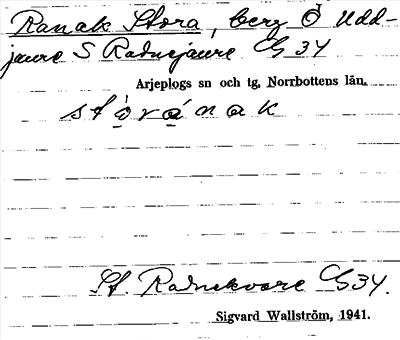 Ranak Stora, berg Ö Udd-
jaure S Radnejaure G 34
Arjeplogs sn och tg, Norrbottens län.
stọrạ́nak
St. Radnekvare G34.
Sigvard Wallström, 1941.